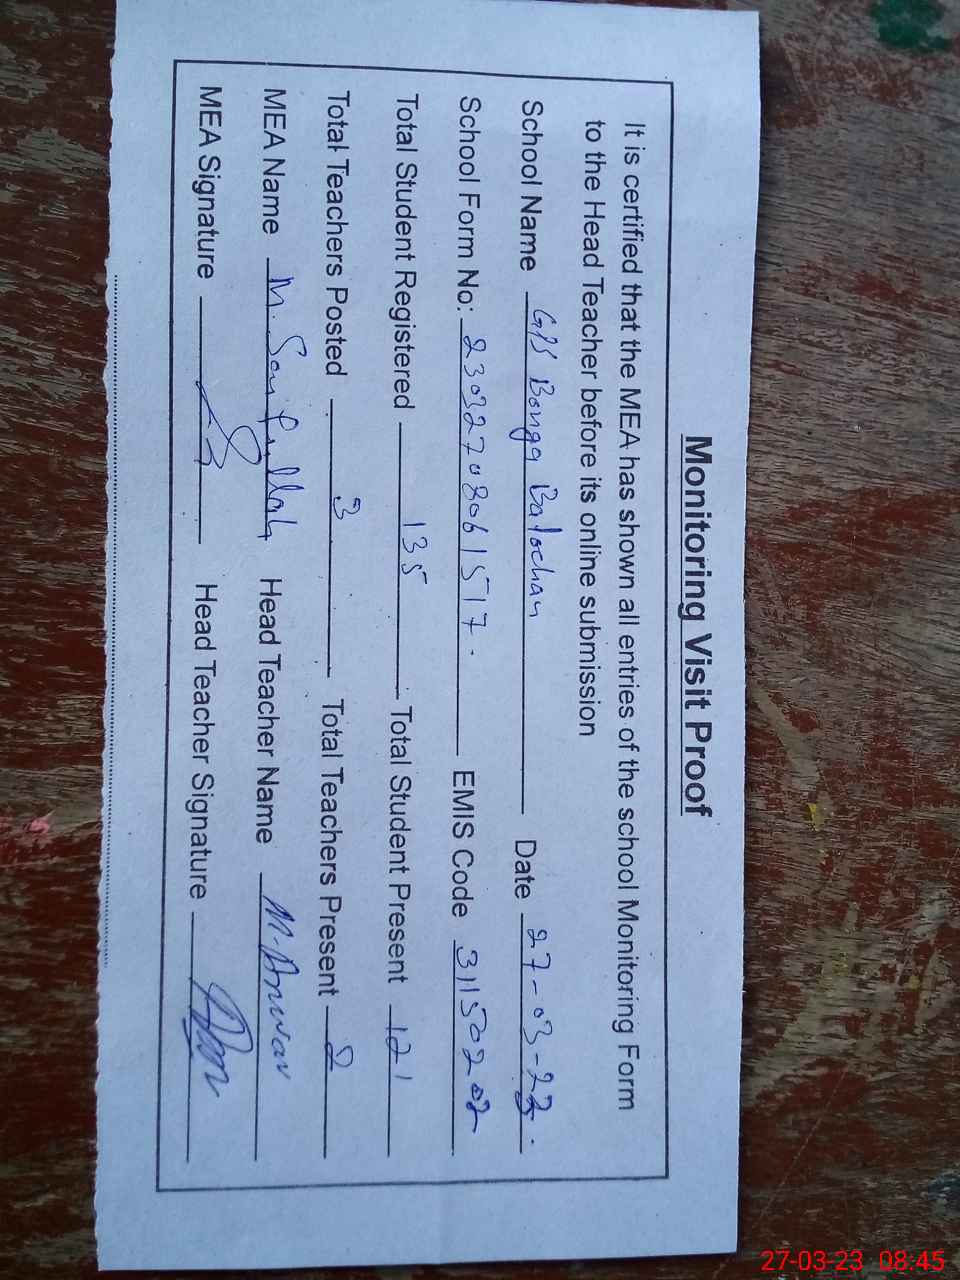 Monitoring Visit Proof
It is certified that the MEA has shown all entries of the school Monitoring Form
to the Head Teacher before its online submission
School Name GPS Bonga Balochan Date 27-03-23.
School Form No: 23032708061517. EMIS Code 31150202
Total Student Registered 135 Total Student Present 121
Total Teachers Posted 3 Total Teachers Present 2
MEA Name M. Saifullah Head Teacher Name M. Anwar
MEA Signature Head Teacher Signature
27-03-23 08:45